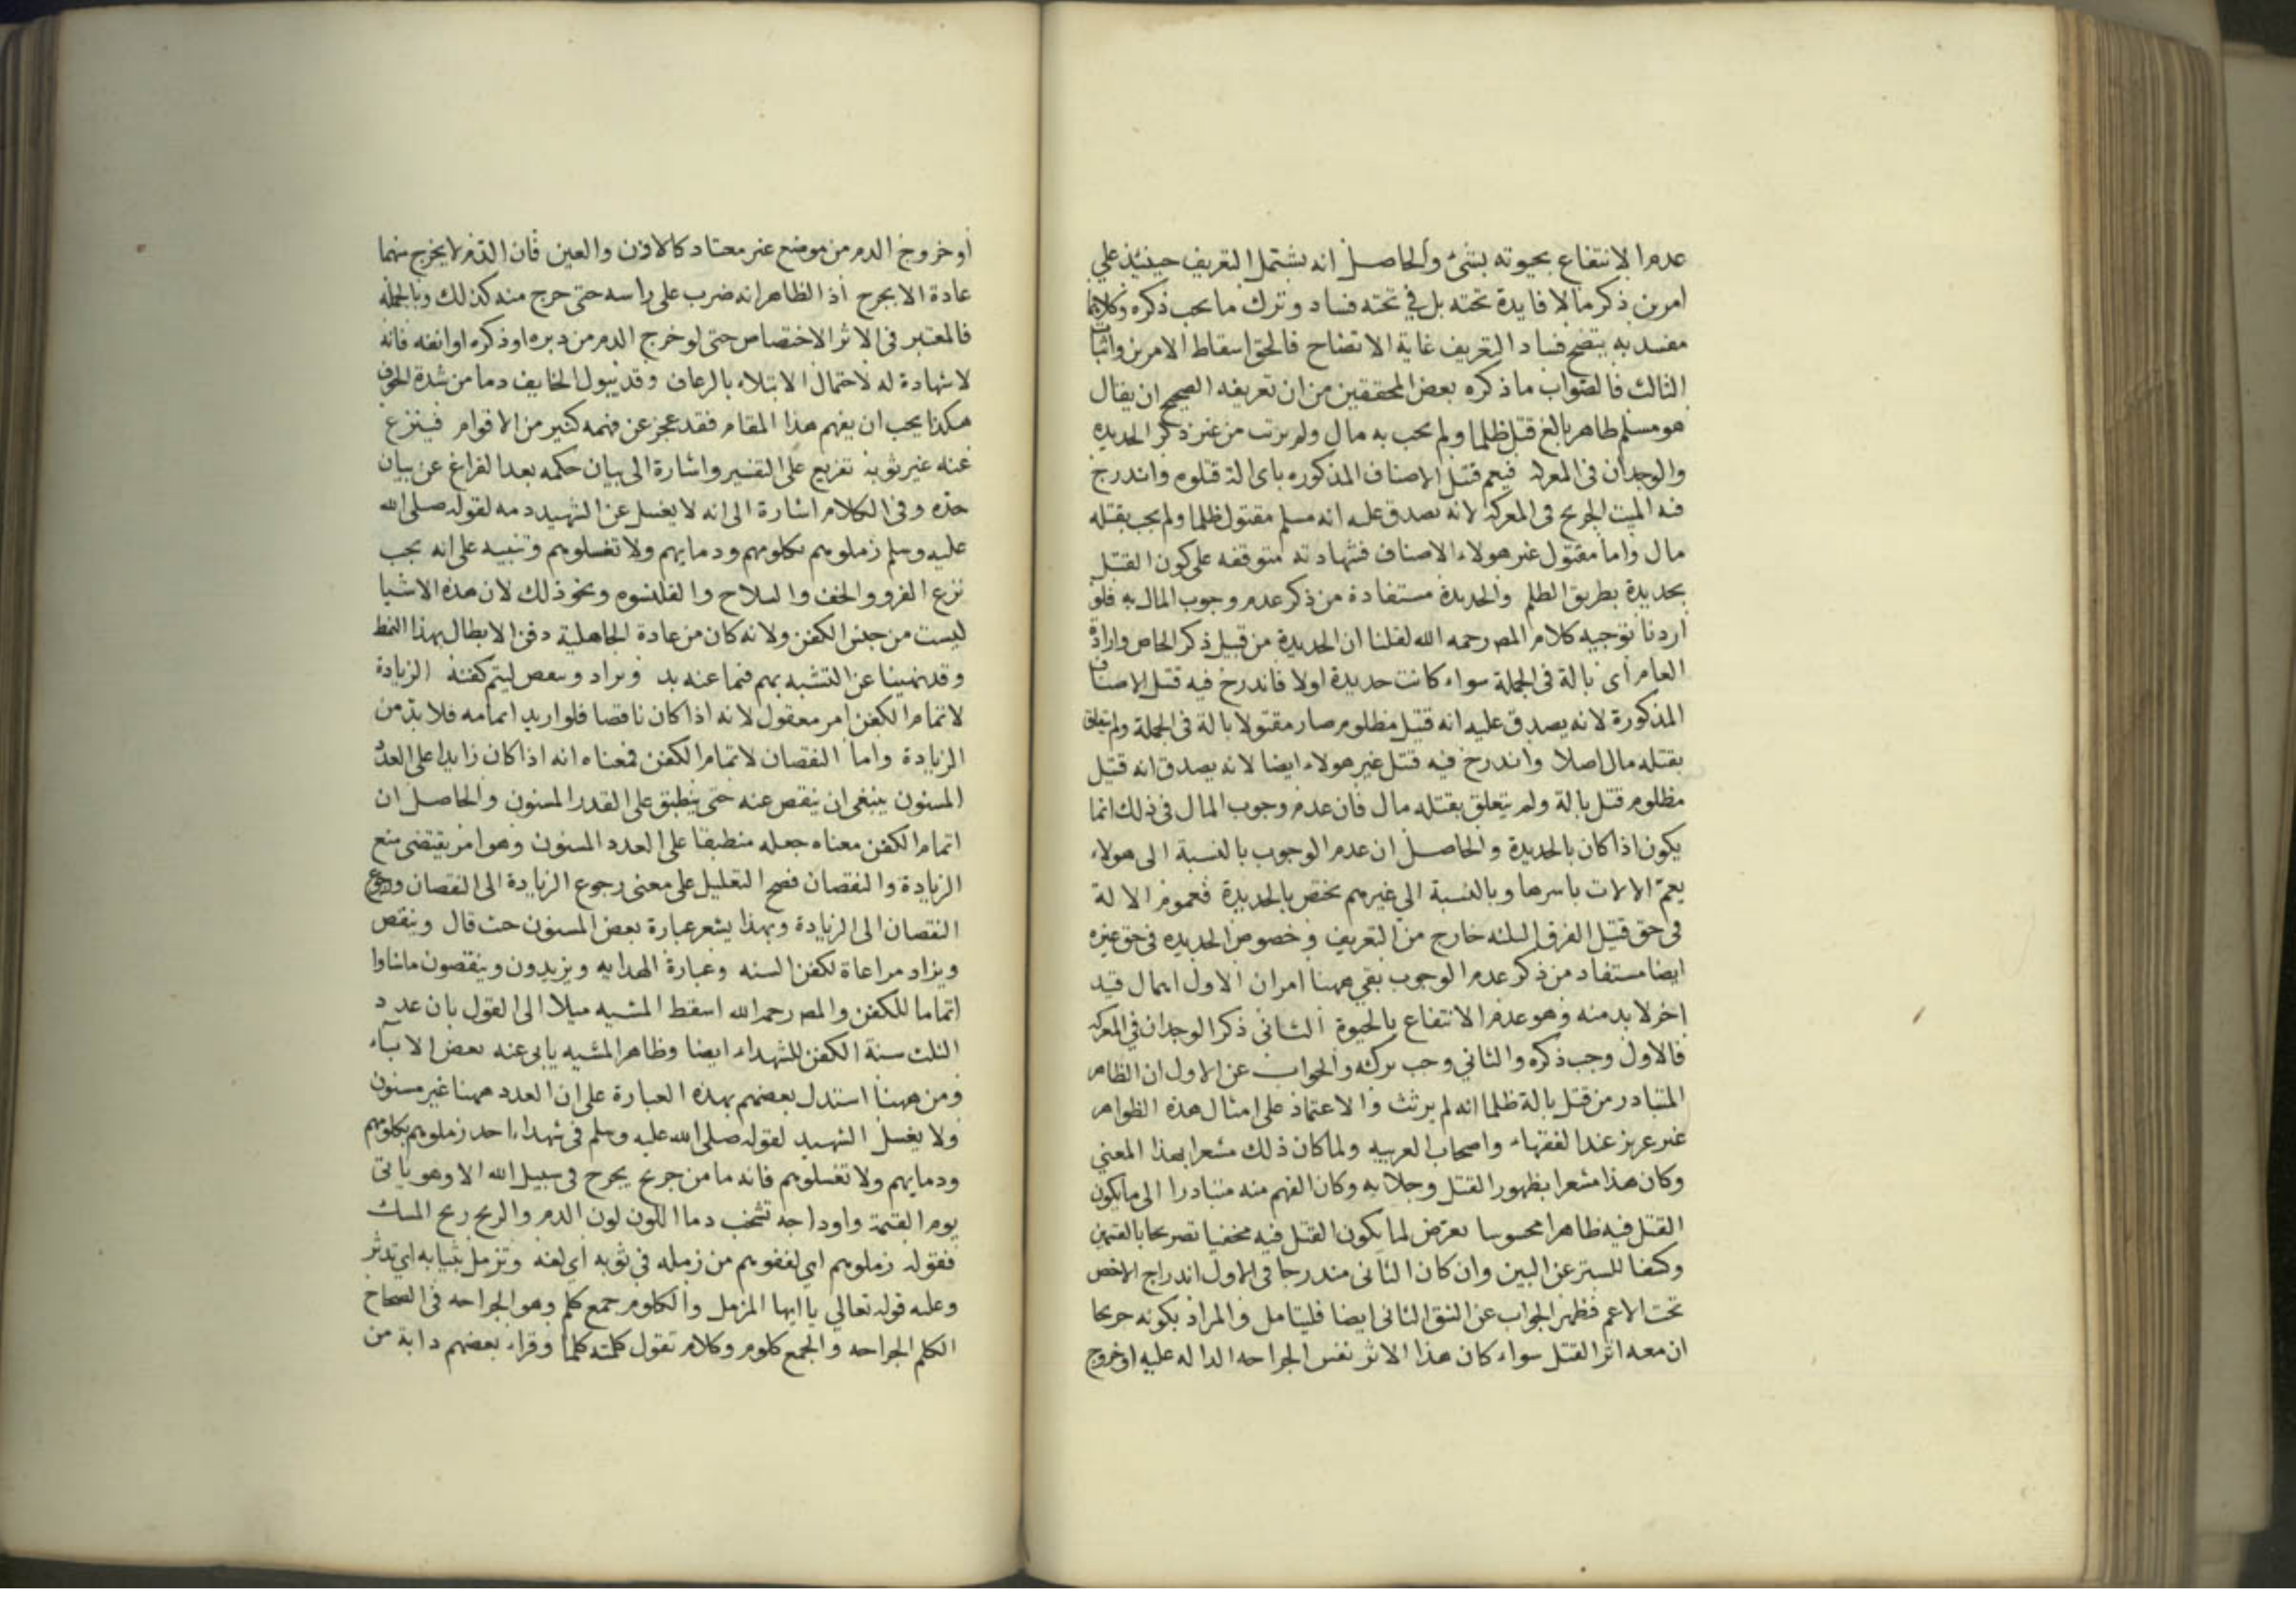 عدم الانتفاع بحيوته بشئ والحاصل انه يشتمل التعريف حينئذ علي
امرين ذكر مالا فايدة تحته بل في تحته فساد وترك ما يجب ذكره وكلاهما
مفسد به يتضح فساد التعريف غاية الاتضاح فالحق اسقاط الامرين واثبات
الثالث فالصواب ما ذكره بعض المحققين من ان تعريفه الصحيح ان يقال
هو مسلم طاهر بالغ قتل ظلما ولم يجب به مال ولم يرتث من غير ذكر الحديده
والوجدان في المعركه فيعم قتل الاصناف المذكوره باى الة قتلوه واندرج
فيه الميت الجريح في المعركه لانه يصدق عليه انه مسلم مقتول ظلما ولم يجب بقتله
مال واما مقتول غير هولاء الاصناف فشهادته متوقفه على كون القتل
بحديدة بطريق الظلم والحديدة مستفادة من ذكر عدم وجوب المال به فلو
اردنا توجيه كلام المص رحمه الله لقلنا ان الحديدة من قبيل ذكر الخاص وارادة
العام اى بالة في الجملة سواء كانت حديدة اولا فاندرج فيه قتل الاصناف
المذكورة لانه يصدق عليه انه قتيل مظلوم صار مقتولا بالة في الجملة ولم يتعلق
بقتله مال اصلا واندرج فيه قتل غير هولاء ايضا لانه يصدق انه قتيل
مظلوم قتل بالة ولم يتعلق بقتله مال فان عدم وجوب المال في ذلك انما
يكون اذا كان بالحديدة والحاصل ان عدم الوجوب بالنسبة الى هولاء
يعم الالات باسرها وبالنسبة الي غيرهم يختص بالحديدة فعموم الالة
في حق قتيل الفرق الثلثه خارج من التعريف وخصوص الحديده في حق غيره
ايضا مستفاد من ذكر عدم الوجوب بقي ههنا امران الاول اهمال قيد
اخر لا بد منه وهو عدم الانتفاع بالحيوة الثاني ذكر الوجدان في المعركه
فالاول وجب ذكره والثاني وجب تركه والجواب عن الاول ان الظاهر
المتبادر من قتل بالة ظلما انه لم يرتث والاعتماد على امثال هذه الظواهر
غير عزيز عند الفقهاء واصحاب العربيه ولما كان ذلك مشعرا بهذا المعني
وكان هذا مشعرا بظهور القتل وجلايه وكان الفهم منه متبادرا الى ما يكون
القتل فيه ظاهرا محسوسا تعرض لما يكون القتل فيه مخفيا تصريحا بالقسمين
وكشفا للستر عن البين وان كان الثاني مندرجا في الاول اندراج الاخص
تحت الاعم فظهر الجواب عن الشق الثاني ايضا فليتامل والمراد بكونه جريحا
ان معه اثر القتل سواء كان هذا الاثر نفس الجراحه الداله عليه او خروج
او خروج الدم من موضع غير معتاد كالاذن والعين فان الدم لا يخرج منهما
عادة الا بجرح اذ الظاهر انه ضرب على راسه حتى خرج منه كذلك وبالجمله
فالمعتبر في الاثر الاختصاص حتى لو خرج الدم من دبره او ذكره او انفه فانه
لا شهادة له لاحتمال الابتلاء بالرعاف وقد يبول الخايف دما من شدة الخوف
هكذا يجب ان يفهم هذا المقام فقد عجز عن فهمه كثير من الاقوام فينزع
عنه غير ثوبه تفريع على التفسير واشارة الى بيان حكمه بعد الفراغ عن بيان
حده وفي الكلام اشارة الى انه لا يغسل عن الشهيد دمه لقوله صلى الله
عليه وسلم زملوهم بكلومهم ودمايهم ولا تغسلوهم وتنبيه على انه يجب
نزع الفرو والخف والسلاح والقلنسوه ونحو ذلك لان هذه الاشيا
ليست من جنس الكفن ولانه كان من عادة الجاهلية دفن الابطال بهذا النمط
وقد نهينا عن التشبه بهم فيما عنه بد ويزاد وينقص ليتم كفنه الزيادة
لاتمام الكفن امر معقول لانه اذا كان ناقصا فلو اريد اتمامه فلا بد من
الزيادة واما النقصان لاتمام الكفن فمعناه انه اذا كان زايدا على العدد
المسنون ينبغي ان ينقص عنه حتى ينطبق على القدر المسنون والحاصل ان
اتمام الكفن معناه جعله منطبقا على العدد المسنون وهو امر يقتضى منع
الزيادة والنقصان فصح التعليل على معنى رجوع الزيادة الى النقصان ورجوع
النقصان الى الزيادة وبهذا يشعر عبارة بعض المسنون حيث قال وينقص
ويزاد مراعاة لكفن السنه وعبارة الهدايه ويزيدون وينقصون ما شاوا
اتماما للكفن والمص رحمه الله اسقط المشيه ميلا الى القول بان عدد
الثلث سنة الكفن للشهداء ايضا وظاهر المشيه يابى عنه بعض الاباء
ومن ههنا استدل بعضهم بهذه العبارة على ان العدد ههنا غير مسنون
ولا يغسل الشهيد لقوله صلى الله عليه وسلم في شهداء احد زملوهم بكلومهم
ودمايهم ولا تغسلوهم فانه ما من جريح يجرح في سبيل الله الا وهو ياتى
يوم القيمة واوداجه تشخب دما اللون لون الدم والريح ريح المسك
فقوله زملوهم اي لففوهم من زمله في ثوبه اي لفه وتزمل بثيابه اي تدثر
وعليه قوله تعالي يا ايها المزمل والكلوم جمع كلم وهو الجراحه في الصحاح
الكلم الجراحه والجمع كلوم وكلام تقول كلمته كلما وقراء بعضهم دابة من